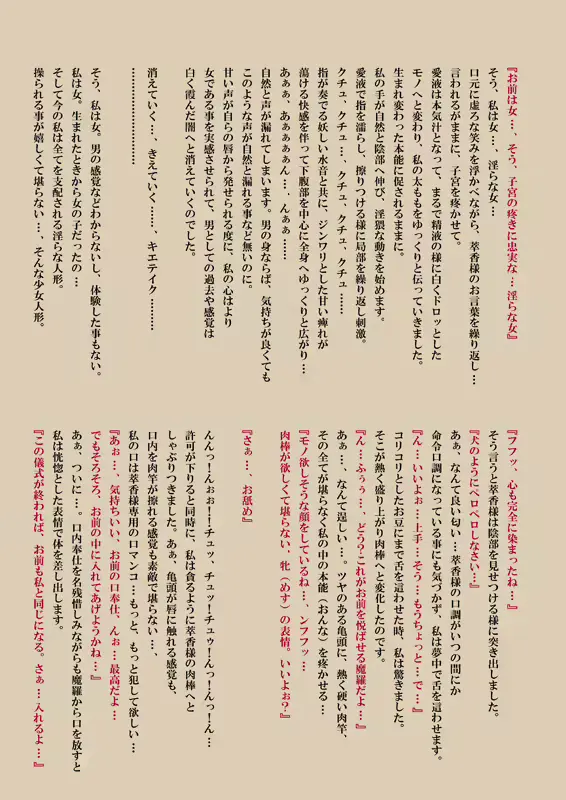 『お前は女…、そう、子宮の疼きに忠実な…淫らな女』
そう、私は女…、淫らな女…
口元に虚ろな笑みを浮かべながら、萃香様のお言葉を繰り返し…
言われるがままに、子宮を疼かせて。
愛液は本気汁となって、まるで精液の様に白くドロッとした
モノへと変わり、私の太ももをゆっくりと伝っていきました。
生まれ変わった本能に促されるままに。
私の手が自然と陰部へ伸び、淫猥な動きを始めます。
愛液で指を濡らし、擦りつける様に局部を繰り返し刺激。
クチュ、クチュ…、クチュ、クチュ、クチュ……
指が奏でる妖しい水音と共に、ジンワリとした甘い痺れが
蕩ける快感を伴って下腹部を中心に全身へゆっくりと広がり…
あぁぁ、あぁぁぁぁん…、んぁぁ……
自然と声が漏れてしまいます。男の身ならば、気持ちが良くても
このような声が自然と漏れる事など無いのに。
甘い声が自らの唇から発せられる度に、私の心はより
女である事を実感させられて、男としての過去や感覚は
白く霞んだ闇へと消えていくのでした。
消えていく…、きえていく……、キエテイク………
……………………
そう、私は女。男の感覚などわからないし、体験した事もない。
私は女。生まれたときから女の子だったの…
そして今の私は全てを支配される淫らな人形。
操られる事が嬉しくて堪らない…、そんな少女人形。
『フフッ、心も完全に染まったね…』
そう言うと萃香様は陰部を見せつける様に突き出しました。
『犬のようにペロペロしなさい…』
あぁ、なんて良い匂い…萃香様の口調がいつの間にか
命令口調になっている事にも気づかず、私は夢中で舌を這わせます。
『ん…いいよぉ…上手…そう…もうちょっと…で…』
コリコリとしたお豆にまで舌を這わせた時、私は驚きました。
そこが熱く盛り上がり肉棒へと変化したのです。
『ん…ふぅぅ…、どう？これがお前を悦ばせる魔羅だよ…』
あぁ…、なんて逞しい…。ツヤのある亀頭に、熱く硬い肉竿、
その全てが堪らなく私の中の本能（おんな）を疼かせる…
『モノ欲しそうな顔をしているね…、ンフフッ…
肉棒が欲しくて堪らない、牝（めす）の表情。いいよぉ？』
『さぁ…、お舐め』
んんっ！んぉぉ！！チュッ、チュッ！チュゥ！んっ！んっ！ん…
許可が下りると同時に、私は貪るように萃香様の肉棒へと
しゃぶりつきました。あぁ、亀頭が唇に触れる感覚も、
口内を肉竿が擦れる感覚も素敵で堪らない…、
私の口は萃香様専用の口マンコ…もっと、もっと犯して欲しい…
『あぉ…、気持ちいい、お前の口奉仕、んぉ…最高だよ…
でもそろそろ、お前の中に入れてあげようかね…』
あぁ、ついに…。口内奉仕を名残惜しみながらも魔羅から口を放すと
私は恍惚とした表情で体を差し出します。
『この儀式が終われば、お前も私と同じになる。さぁ…入れるよ…』